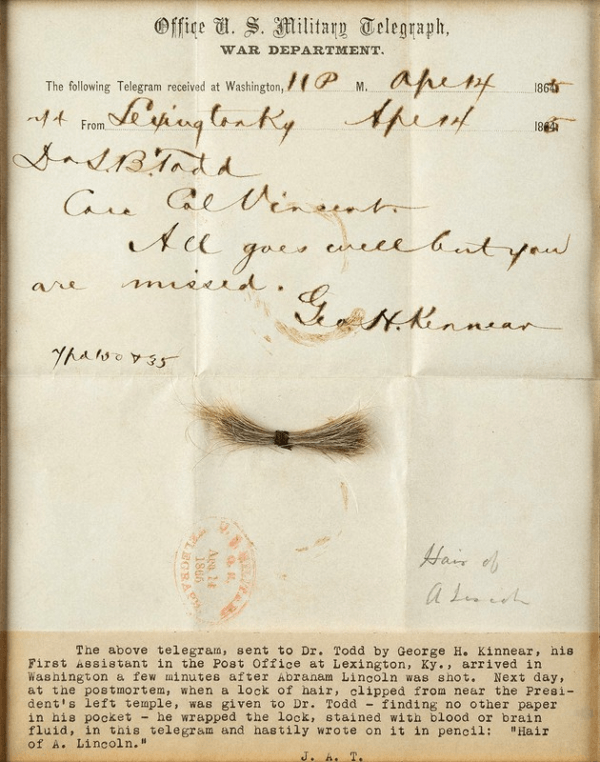 Office U. S. Military Telegraph,
WAR DEPARTMENT.
The following Telegram received at Washington, 11 P M. Apr 14 1865
From Lexington Ky Apr 14 1865
Dr L. B. Todd
Care Col Vincent.
All goes well but you
are missed.
Geo H. Kinnear
Hair of
A Lincoln
U. S. MILITARY
Apr 14
1865
TELEGRAPH
The above telegram, sent to Dr. Todd by George H. Kinnear, his
First Assistant in the Post Office at Lexington, Ky., arrived in
Washington a few minutes after Abraham Lincoln was shot. Next day,
at the postmortem, when a lock of hair, clipped from near the Presi-
dent's left temple, was given to Dr. Todd - finding no other paper
in his pocket - he wrapped the lock, stained with blood or brain
fluid, in this telegram and hastily wrote on it in pencil: "Hair
of A. Lincoln."
J. A. T.